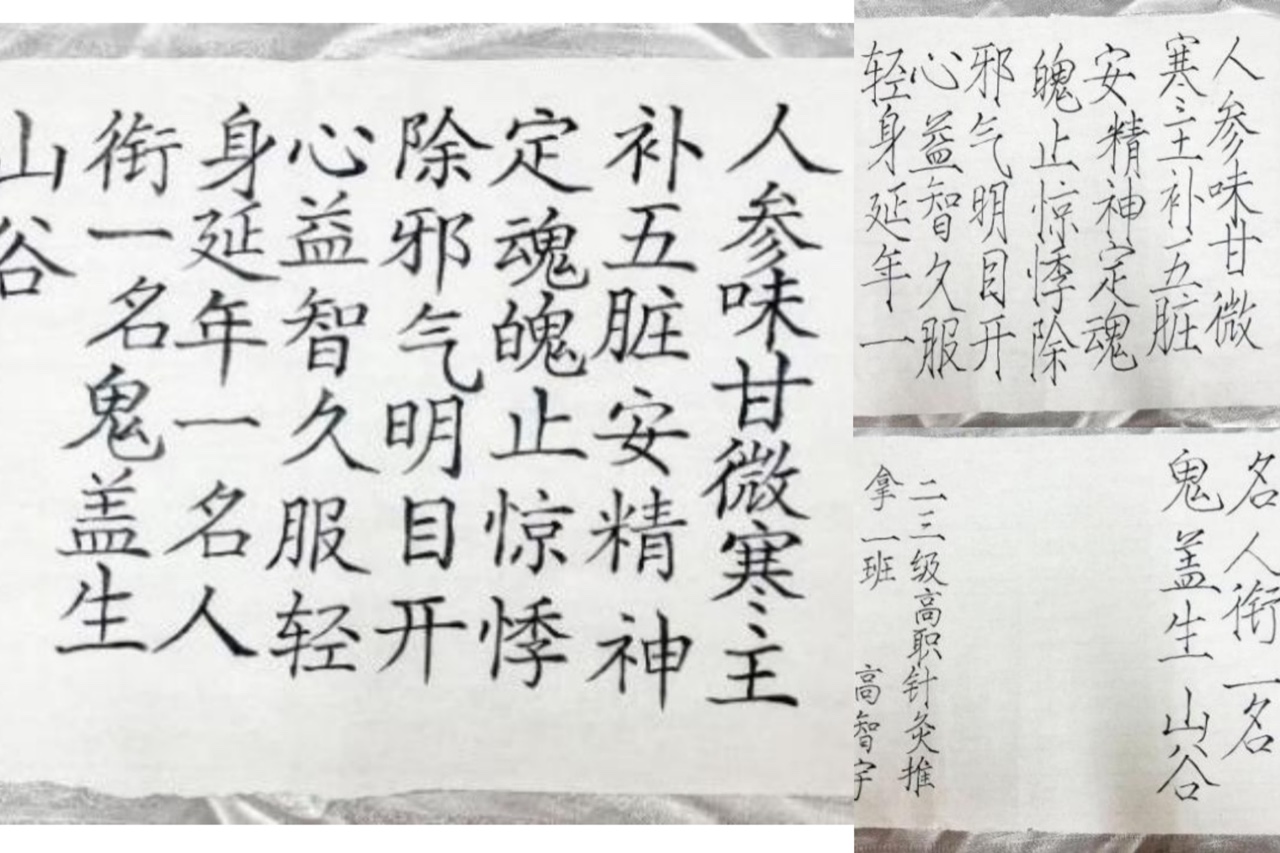 人参味甘微寒主
补五脏安精神
定魂魄止惊悸
除邪气明目开
心益智久服轻
身延年一名人
衔一名鬼盖生
山谷
人参味甘微
寒主补五脏
安精神定魂
魄止惊悸除
邪气明目开
心益智久服
轻身延年一
名人衔一名
鬼盖生山谷
二三级高职针灸推
拿一班 高智宇